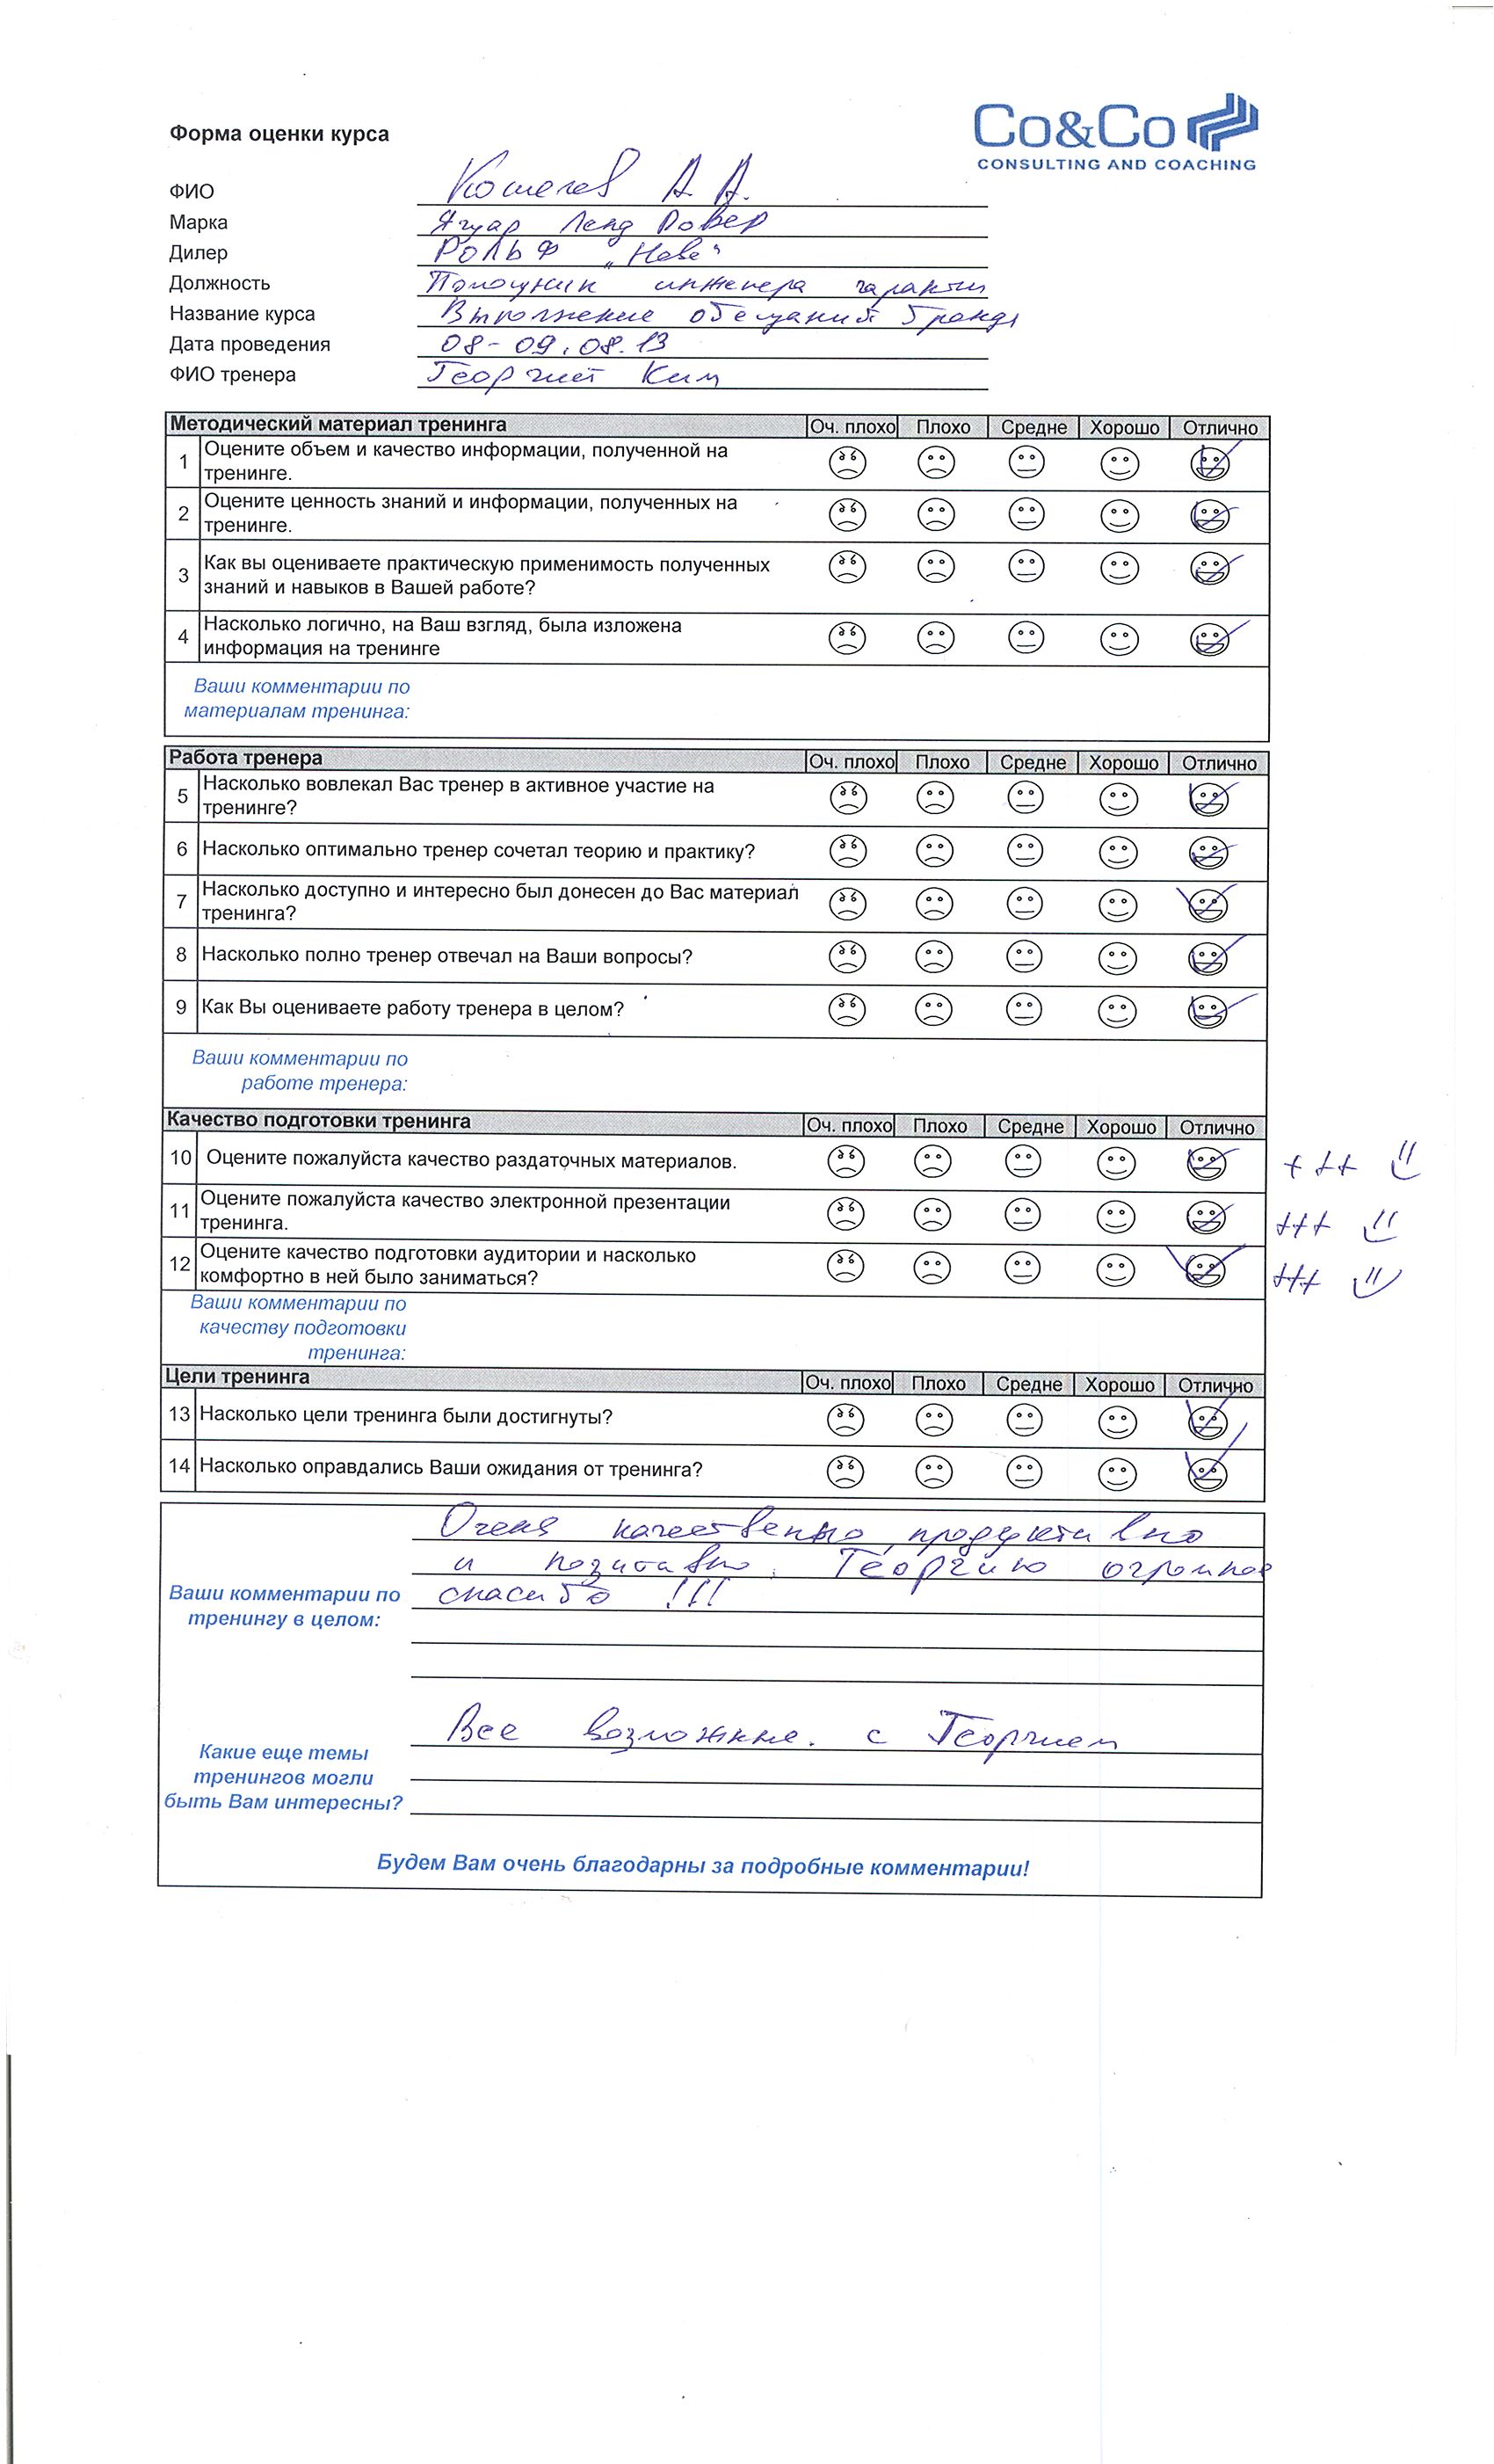 Co&Co
CONSULTING AND COACHING
Форма оценки курса
ФИО Кошелев А. А.
Марка Ягуар Ленд Ровер
Дилер РОЛЬФ „Нева“
Должность Помощник инженера гарантии
Название курса Выполнение обещаний бренда
Дата проведения 08-09.08.13
ФИО тренера Георгий Ким
Методический материал тренинга Оч. плохо Плохо Средне Хорошо Отлично
1 Оцените объем и качество информации, полученной на
тренинге.
2 Оцените ценность знаний и информации, полученных на
тренинге.
3 Как вы оцениваете практическую применимость полученных
знаний и навыков в Вашей работе?
4 Насколько логично, на Ваш взгляд, была изложена
информация на тренинге
Ваши комментарии по
материалам тренинга:
Работа тренера Оч. плохо Плохо Средне Хорошо Отлично
5 Насколько вовлекал Вас тренер в активное участие на
тренинге?
6 Насколько оптимально тренер сочетал теорию и практику?
7 Насколько доступно и интересно был донесен до Вас материал
тренинга?
8 Насколько полно тренер отвечал на Ваши вопросы?
9 Как Вы оцениваете работу тренера в целом?
Ваши комментарии по
работе тренера:
Качество подготовки тренинга Оч. плохо Плохо Средне Хорошо Отлично
10 Оцените пожалуйста качество раздаточных материалов. +++
11 Оцените пожалуйста качество электронной презентации
тренинга. +++
12 Оцените качество подготовки аудитории и насколько
комфортно в ней было заниматься? +++
Ваши комментарии по
качеству подготовки
тренинга:
Цели тренинга Оч. плохо Плохо Средне Хорошо Отлично
13 Насколько цели тренинга были достигнуты?
14 Насколько оправдались Ваши ожидания от тренинга?
Очень качественно, продуктивно
и позитивно. Георгию огромное
спасибо !!!
Ваши комментарии по
тренингу в целом:
Все возможные. с Георгием
Какие еще темы
тренингов могли
быть Вам интересны?
Будем Вам очень благодарны за подробные комментарии!